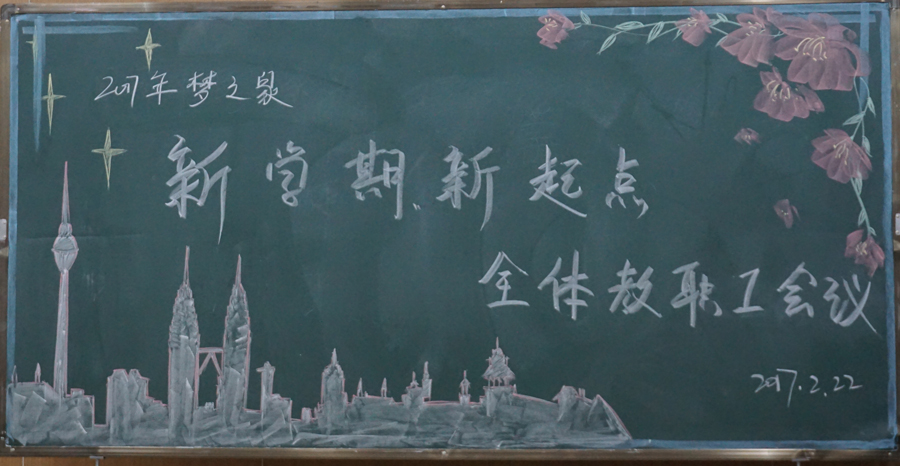 2017年梦之泉
新学期、新起点
全体教职工会议
2017.2.22